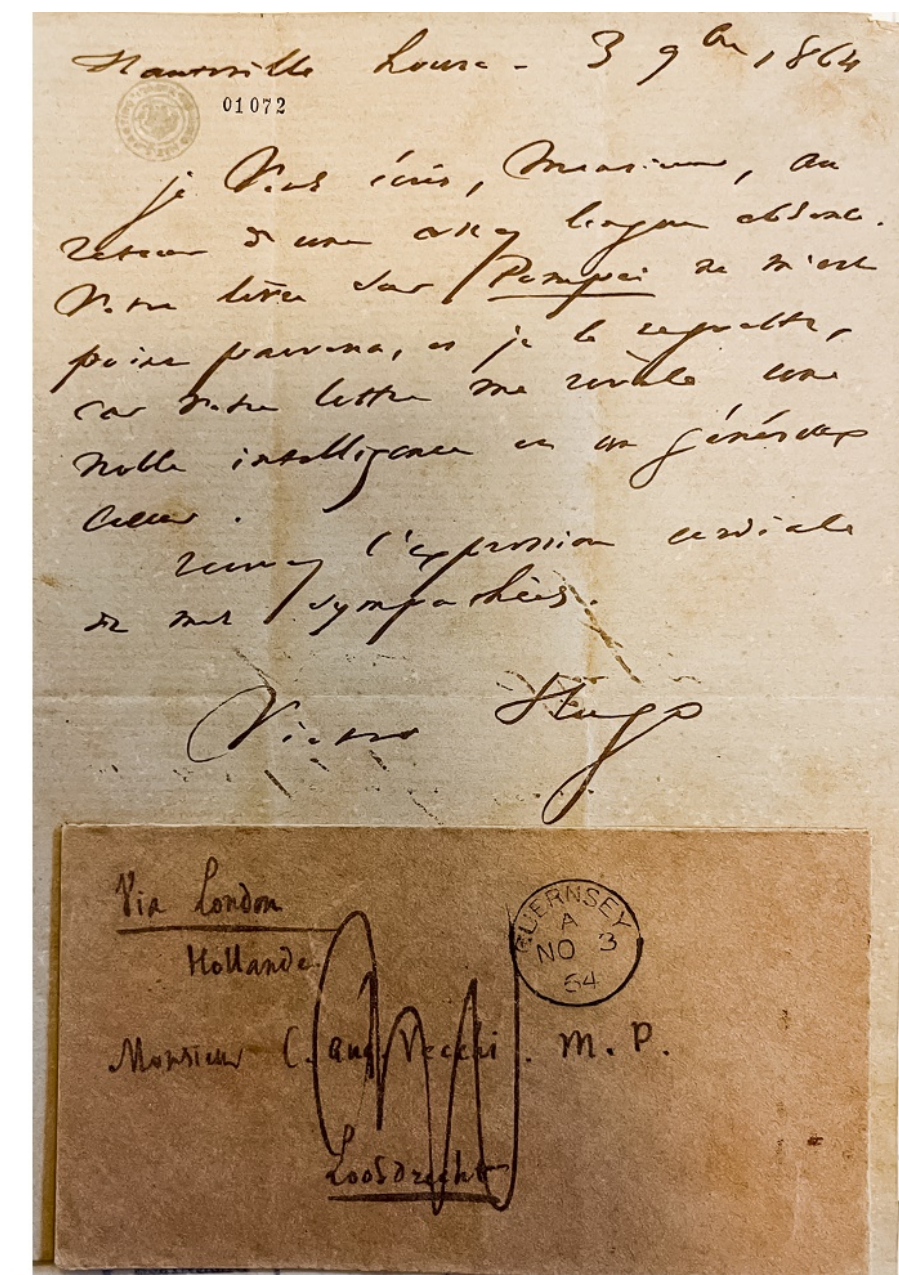 Hauteville house - 3 9bre 1864
01072
je vous écris, Monsieur, au
retour d'une assez longue absence.
Votre livre sur Pompei ne m'est
point parvenu, et je le regrette,
car votre lettre me révèle une
noble intelligence et un généreux
cœur.
recevez l'expression cordiale
de mes sympathies.
Victor Hugo
Via London
Hollande.
GUERNSEY
A
NO 3
64
Monsieur C. Aug. Vecchi. M. P.
Loosdrecht